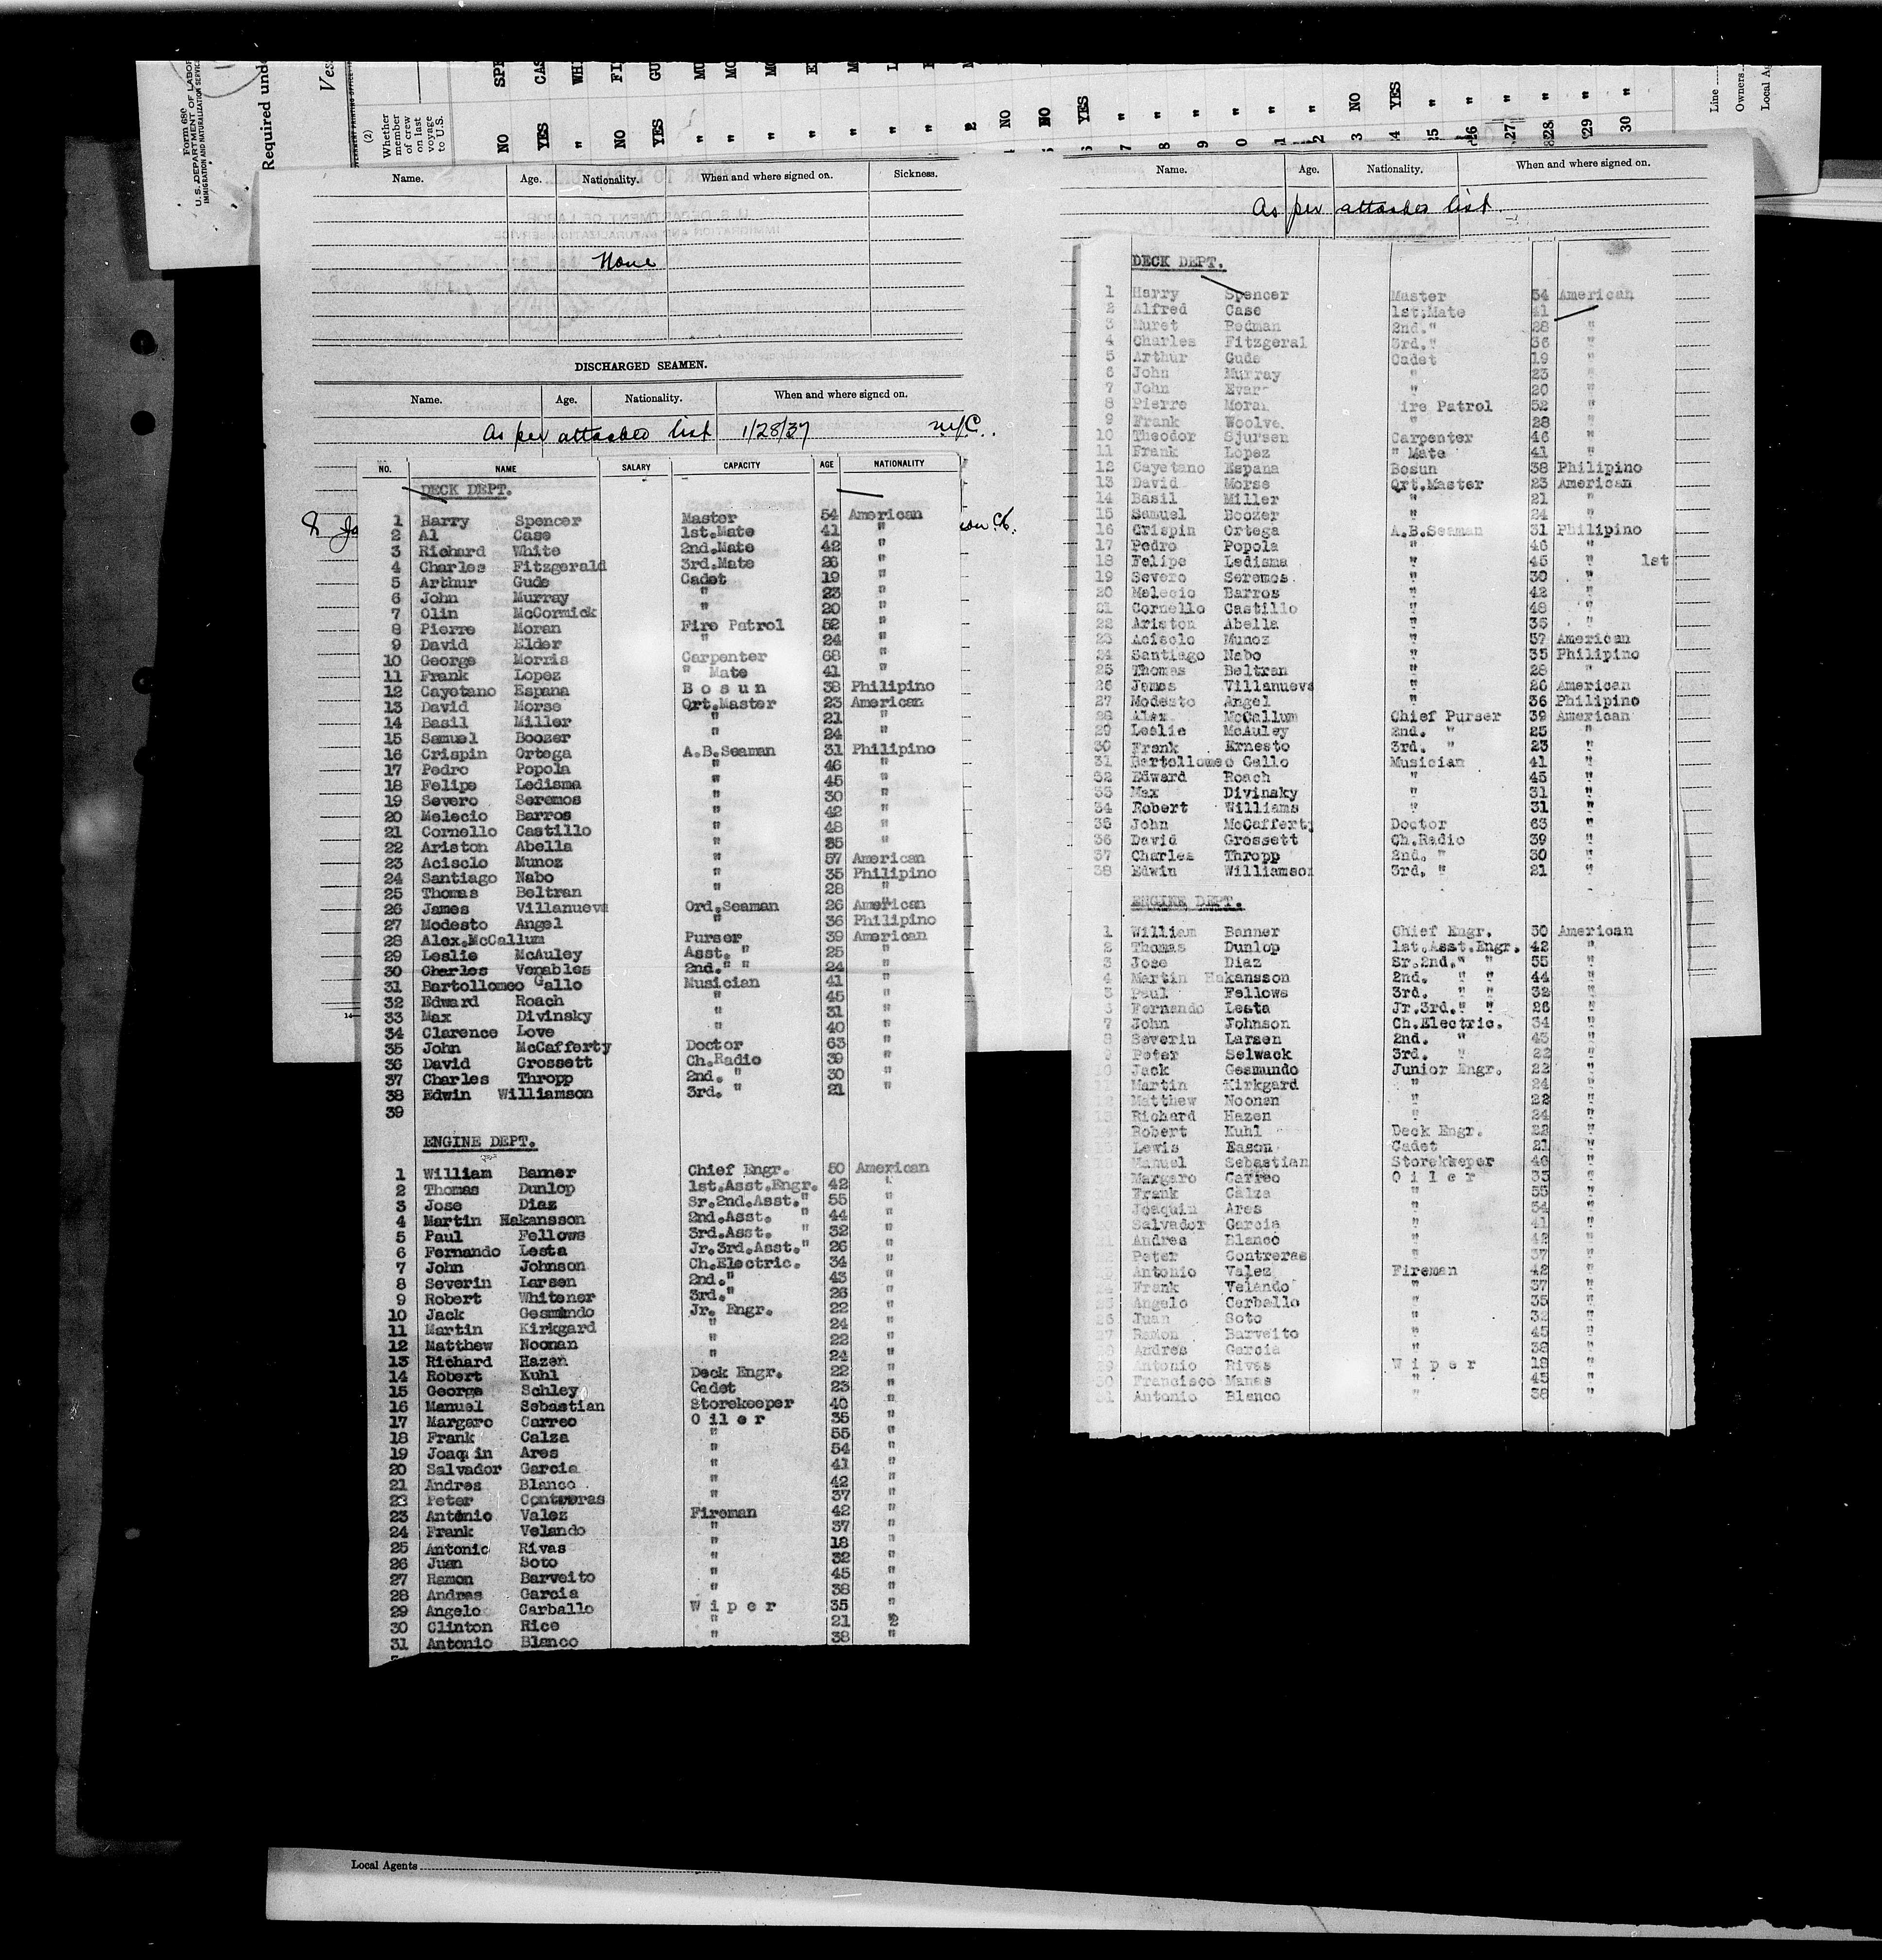 Form 680
U. S. DEPARTMENT OF LABOR
IMMIGRATION AND NATURALIZATION SERVICE
Required unde
Ves
(2)
Whether
member
of crew
on last
voyage
to U.S.
NO
YES
"
NO
YES
"
"
"
"
"
"
"
NO
NO
YES
"
"
"
"
"
"
NO
YES
"
"
"
"
"
"
Line
Owners
Local Ag
Name. Age. Nationality. When and where signed on. Sickness.
None
DISCHARGED SEAMEN.
Name. Age. Nationality. When and where signed on.
As per attached list 1/28/37 N.Y.C.
NO. NAME SALARY CAPACITY AGE NATIONALITY
DECK DEPT.
1 Harry Spencer Master 54 American
2 Al Case 1st.Mate 41 "
3 Richard White 2nd.Mate 42 "
4 Charles Fitzgerald 3rd.Mate 26 "
5 Arthur Gude Cadet 19 "
6 John Murray " 23 "
7 Olin McCormick " 20 "
8 Pierre Moran Fire Patrol 52 "
9 David Elder " 24 "
10 George Morris Carpenter 68 "
11 Frank Lopez " Mate 41 "
12 Cayetano Espana B o s u n 38 Philipino
13 David Morse Qrt.Master 23 American
14 Basil Miller " 21 "
15 Samuel Boozer " 24 "
16 Crispin Ortega A.B.Seaman 31 Philipino
17 Pedro Popola " 46 "
18 Felipe Ledisma " 45 "
19 Severo Seremos " 30 "
20 Melecio Barros " 42 "
21 Cornello Castillo " 48 "
22 Ariston Abella " 35 "
23 Acisclo Munoz " 57 American
24 Santiago Nabo " 35 Philipino
25 Thomas Beltran " 28 "
26 James Villanueva Ord.Seaman 26 American
27 Modesto Angel " 36 Philipino
28 Alex.McCallum Purser 39 American
29 Leslie McAuley Asst. " 25 "
30 Charles Venables 2nd." " 24 "
31 Bartollomeo Gallo Musician 41 "
32 Edward Roach " 45 "
33 Max Divinsky " 31 "
34 Clarence Love " 40 "
35 John McCafferty Doctor 63 "
36 David Grossett Ch.Radio 39 "
37 Charles Thropp 2nd. " 30 "
38 Edwin Williamson 3rd. " 21 "
39
ENGINE DEPT.
1 William Banner Chief Engr. 50 American
2 Thomas Dunlop 1st.Asst.Engr. 42 "
3 Jose Diaz Sr.2nd.Asst." 55 "
4 Martin Hakansson 2nd.Asst. " 44 "
5 Paul Fellows 3rd.Asst. " 32 "
6 Fernando Lesta Jr.3rd.Asst." 26 "
7 John Johnson Ch.Electric. 34 "
8 Severin Larsen 2nd." 43 "
9 Robert Whitener 3rd." 26 "
10 Jack Gesmundo Jr. Engr. 22 "
11 Martin Kirkgard " 24 "
12 Matthew Noonan " 22 "
13 Richard Hazen " 24 "
14 Robert Kuhl Deck Engr. 22 "
15 George Schley Cadet 23 "
16 Manuel Sebastian Storekeeper 40 "
17 Margaro Carreo O i l e r 35 "
18 Frank Calza " 55 "
19 Joaquin Ares " 54 "
20 Salvador Garcia " 41 "
21 Andres Blanco " 42 "
22 Peter Contreras " 37 "
23 Antonio Valez Fireman 42 "
24 Frank Velando " 37 "
25 Antonio Rivas " 18 "
26 Juan Soto " 32 "
27 Ramon Barveito " 45 "
28 Andres Garcia " 38 "
29 Angelo Carballo W i p e r 35 "
30 Clinton Rice " 21 "
31 Antonio Blanco " 38 "
Name. Age. Nationality. When and where signed on.
As per attached list
DECK DEPT.
1 Harry Spencer Master 54 American
2 Alfred Case 1st.Mate 41 "
3 Muret Redman 2nd." 28 "
4 Charles Fitzgeral 3rd." 36 "
5 Arthur Gude Cadet 19 "
6 John Murray " 23 "
7 John Evar " 20 "
8 Pierre Moran ire Patrol 52 "
9 Frank Woolve " 28 "
10 Theodor Sjursen Carpenter 46 "
11 Frank Lopez " Mate 41 "
12 Cayetano Espana Bosun 38 Philipino
13 David Morse Qrt.Master 23 American
14 Basil Miller " 21 "
15 Samuel Boozer " 24 "
16 Crispin Ortega A.B.Seaman 31 Philipino
17 Pedro Popola " 46 "
18 Felipe Ledisma " 45 " 1st
19 Severo Seremos " 30 "
20 Melecio Barros " 42 "
21 Cornello Castillo " 48 "
22 Ariston Abella " 35 "
23 Acisclo Munoz " 57 American
24 Santiago Nabo " 35 Philipino
25 Thomas Beltran " 28 "
26 James Villanueva " 26 American
27 Modesto Angel " 36 Philipino
28 Alex. McCallum Chief Purser 39 American
29 Leslie McAuley 2nd. " 25 "
30 Frank Ernesto 3rd. " 23 "
31 Bartollomeo Gallo Musician 41 "
32 Edward Roach " 45 "
33 Max Divinsky " 31 "
34 Robert Williams " 31 "
35 John McCafferty Doctor 63 "
36 David Grossett Ch.Radio 39 "
37 Charles Thropp 2nd. " 30 "
38 Edwin Williamson 3rd. " 21 "
ENGINE DEPT.
1 William Banner Chief Engr. 50 American
2 Thomas Dunlop 1st.Asst.Engr. 42 "
3 Jose Diaz Sr.2nd." " 55 "
4 Martin Hakansson 2nd. " " 44 "
5 Paul Fellows 3rd. " " 32 "
6 Fernando Lesta Jr.3rd." " 26 "
7 John Johnson Ch.Electric. 34 "
8 Severin Larsen 2nd. " 43 "
9 Peter Selwack 3rd. " 22 "
10 Jack Gesmundo Junior Engr. 22 "
11 Martin Kirkgard " 24 "
12 Matthew Noonan " 22 "
13 Richard Hazen " 24 "
Robert Kuhl Deck Engr. 22 "
Lewis Eason Cadet 21 "
Manuel Sebastian Storekeeper 40 "
Margaro Carreo O i l e r 35 "
Frank Calza " 55 "
Joaquin Ares " 54 "
Salvador Garcia " 41 "
21 Andres Blanco " 42 "
Peter Contreras " 37 "
Antonio Valez Fireman 42 "
Frank Velando " 37 "
25 Angelo Carballo " 35 "
26 Juan Soto " 32 "
27 Ramon Barveito " 45 "
8 Andres Garcia " 38 "
9 Antonio Rivas W i p e r 18 "
30 Francisco Manas " 45 "
31 Antonio Blanco " 38 "
Local Agents